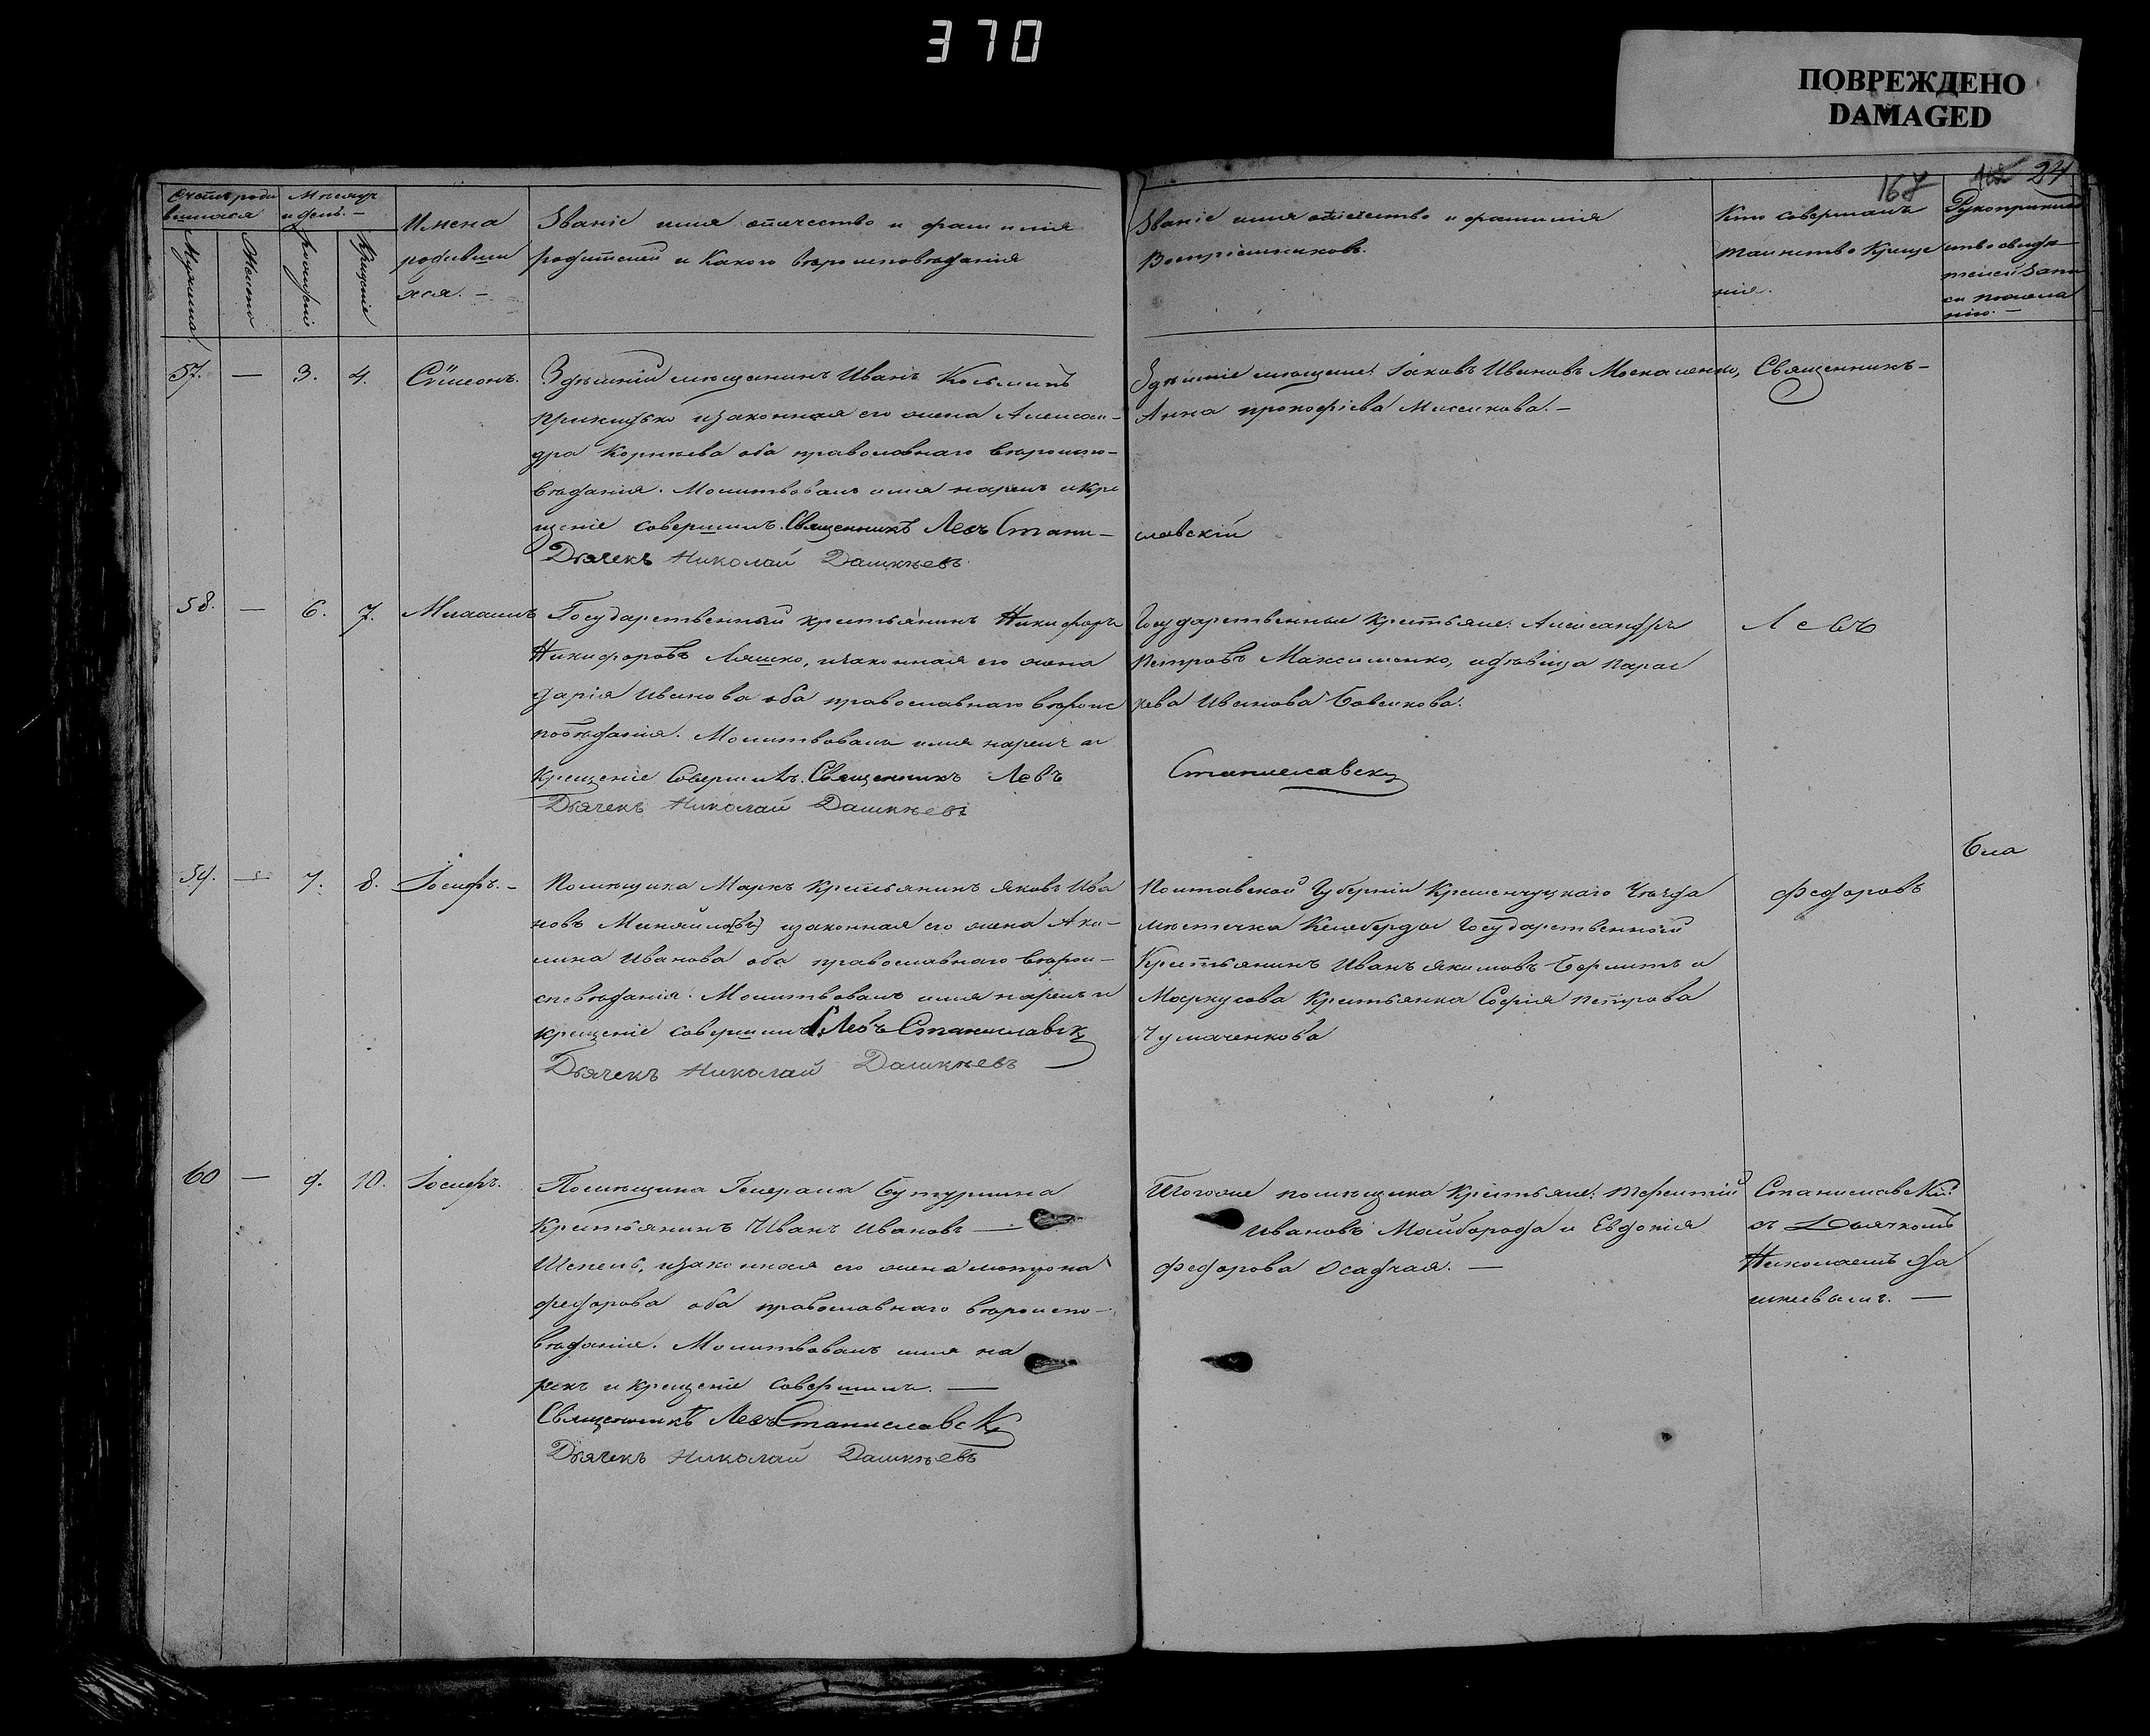 370
ПОВРЕЖДЕНО
DAMAGED
167 24
Счетъ роди
вшихся
Мужеска
Женско
Мѣсяцъ
и день. —
рожденія
крещенія
Имена
родивши
хся. —
Званіе имя отчество и фамилія
родителей и какого вѣроисповѣданія
Званіе имя отчество и фамилія
Воспріемниковъ.
Кто совершалъ
таинство креще
нія.
Рукоприклад
ство свидѣ
телей запи
си по жела
нію. —
57. — 3. 4. Сѷмеонъ.
Здѣшній мѣщанинъ Иванъ Козьминъ
и законная его жена Алексан-
дра Корнѣева оба православнаго вѣроиспо-
вѣданія. Молитвовалъ имя нарекъ и кре
щеніе совершилъ. Священникъ Левъ Стани-
славскій
Дьячекъ Николай Дашкѣевъ
Здѣшніе мѣщане: Іаковъ Ивановъ Москаленко,
Анна Прокофіева —
Священникъ —
58. — 6. 7. Михаилъ
Государственный крестьянинъ Никифоръ
Никифоровъ Ляшко, и законная его жена
Дарія Иванова оба православнаго вѣроис
повѣданія. Молитвовалъ имя нарекъ и
крещеніе совершилъ. Священникъ Левъ
Станиславскій
Дьячекъ Николай Дашкѣевъ
Государственные крестьяне: Александръ
Петровъ Максименко, и дѣвица Парас
кева Иванова
Левъ
59. — 7. 8. Іосифъ. —
Помѣщика Маркъ крестьянинъ Яковъ Ива
новъ и законная его жена Аки-
лина Иванова оба православнаго вѣрои-
сповѣданія. Молитвовалъ имя нарекъ и
крещеніе совершилъ С. Левъ Станиславскій
Дьячекъ Николай Дашкѣевъ
Полтавской Губерніи Кременчуцкаго Уѣзда
мѣстечка Келеберды Государственный
крестьянинъ Иванъ Якимовъ и
Маркусова крестьянка Софія Петрова
Чумаченкова
Федоровъ
60 — 9. 10. Іосифъ.
Помѣщика Генерала Бутурлина
крестьянинъ Иванъ Ивановъ —
Шепель, и законная его жена Мотрона
Федорова оба православнаго вѣроиспо-
вѣданія. Молитвовалъ имя на
рекъ и крещеніе совершилъ. —
Священникъ Левъ Станиславскій
Дьячекъ Николай Дашкѣевъ
Тогоже помѣщика крестьяне: Терентій
Ивановъ Майборода и Евдокія
Федорова Осадчая. —
Станиславскій
съ Дьячкомъ
Николаемъ Да
шкевымъ. —